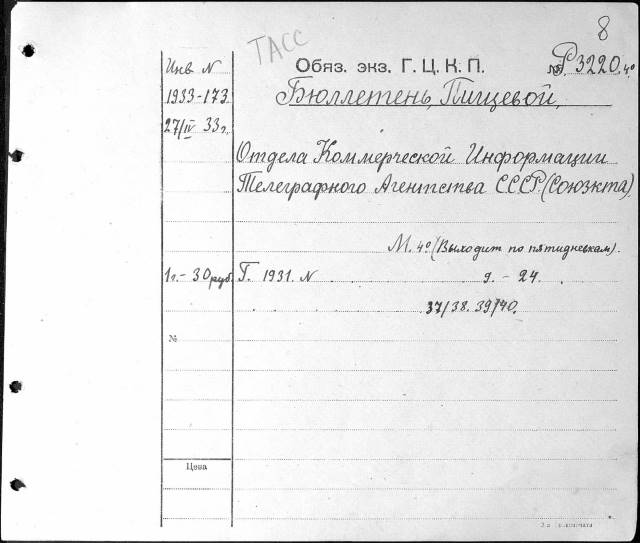 8
ТАСС
Инв N
Обяз. экз. Г. Ц. К. П.
№ Р 3220. 4о
1933-173
Бюллетень, Пищевой,
27/IV 33г.
Отдела Коммерческой Информации
Телеграфного Агентства СССР. (Союзкта).
М. 4о (Выходит по пятидневкам).
1г.- 30 руб.
Г. 1931. N 9. - 24.
37/38. 39/40.
№
Цена